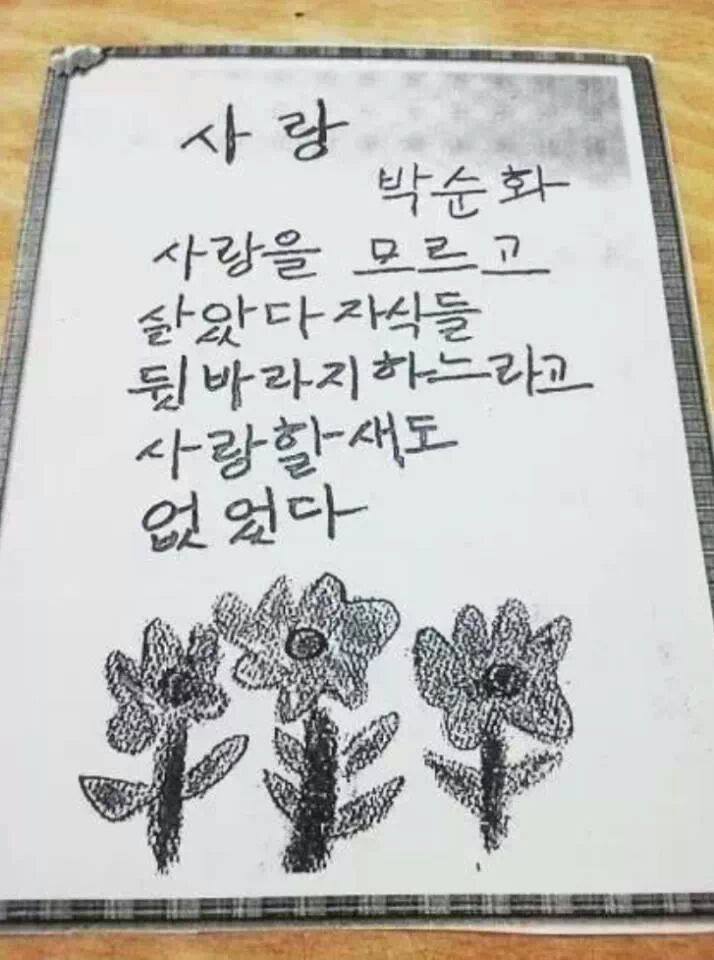 사랑
박순화
사랑을 모르고
살았다 자식들
뒷바라지하느라고
사랑할새도
없었다